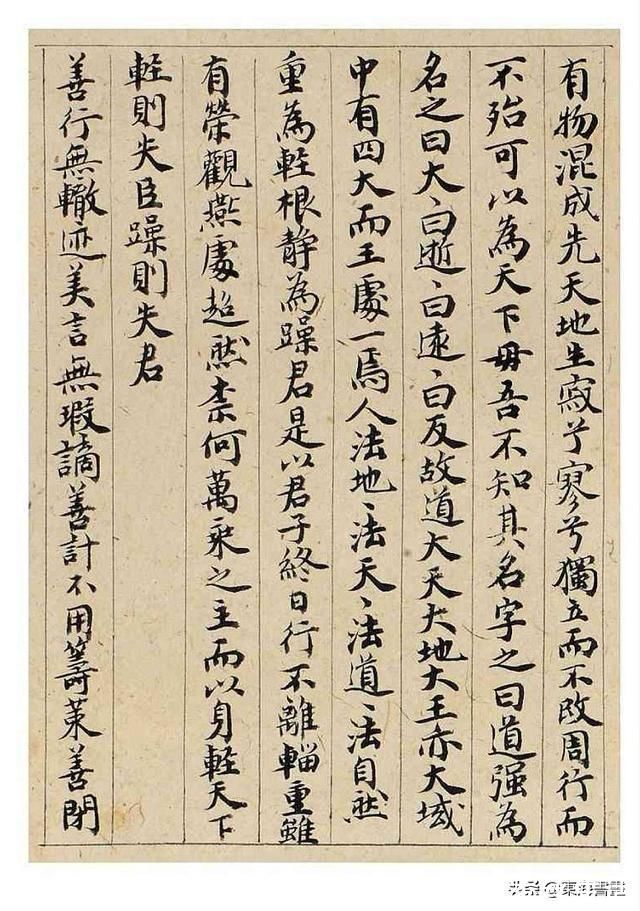 有物混成先天地生寂兮寥兮獨立而不改周行而
不殆可以為天下毋吾不知其名字之曰道强為
名之曰大〻曰逝〻曰遠〻曰反故道大天大地大王亦大域
中有四大而王處一焉人法地〻法天〻法道〻法自然
重為輊根静為躁君是以君子終日行不離輜重雖
有榮觀燕處超然柰何萬乘之主而以身輊天下
輊則失臣躁則失君
善行無轍迹美言無瑕謫善計不用籌策善閉
头条@東海書畫